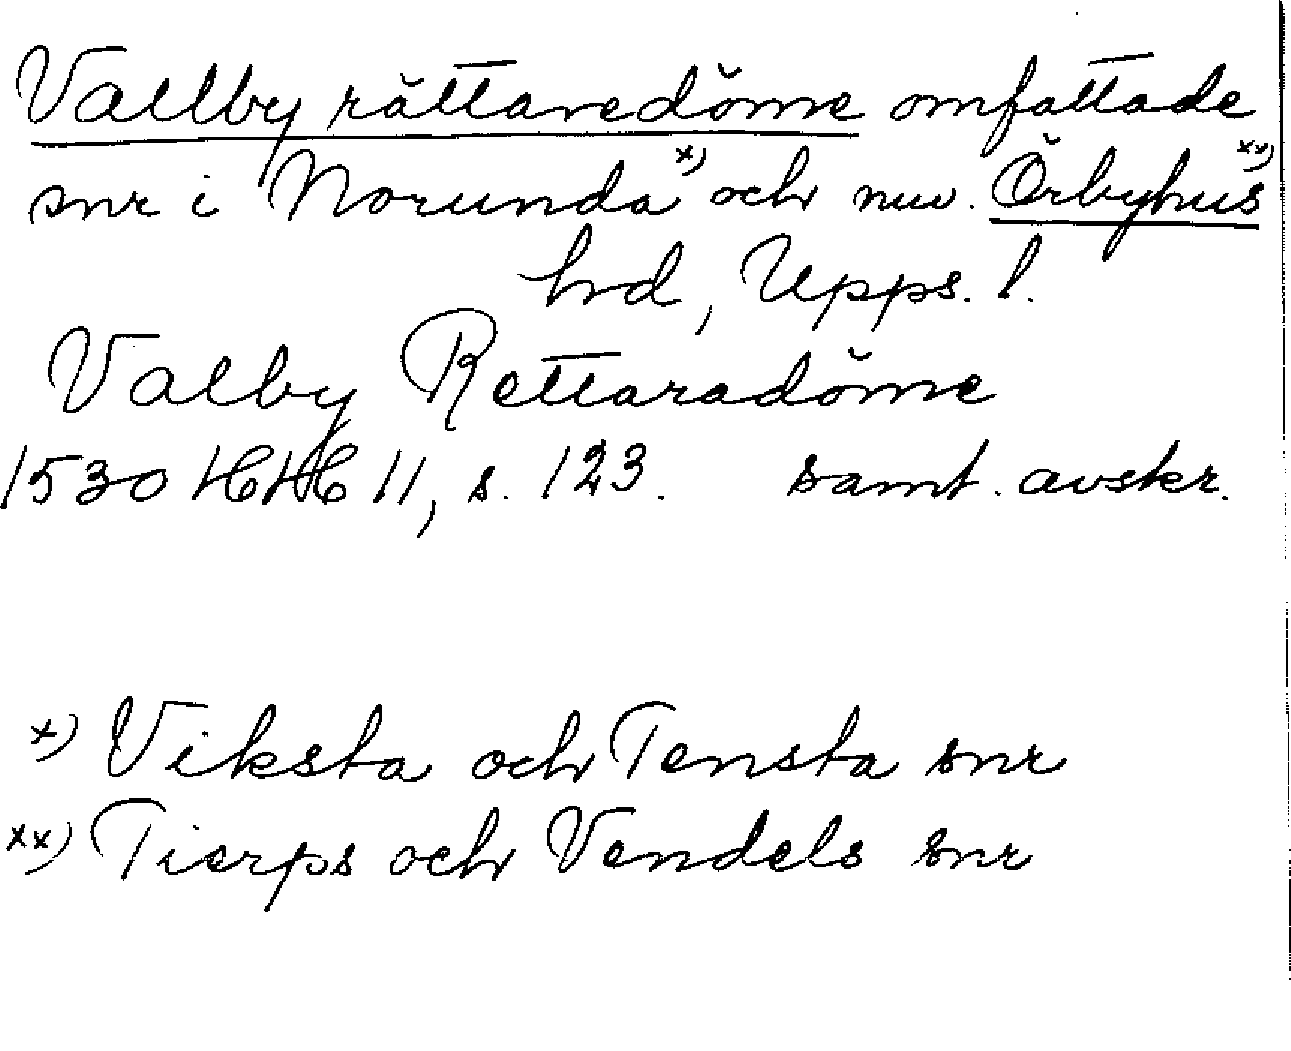 Vallby rättaredöme omfattade
snr i Norunda x) och nuv. Örbyhus xx)
hd, Upps. l.
Valby Rettaradöme
1530 HH 11, s. 123. samt. avskr.
x) Viksta och Tensta snr
xx) Tierps och Vendels snr